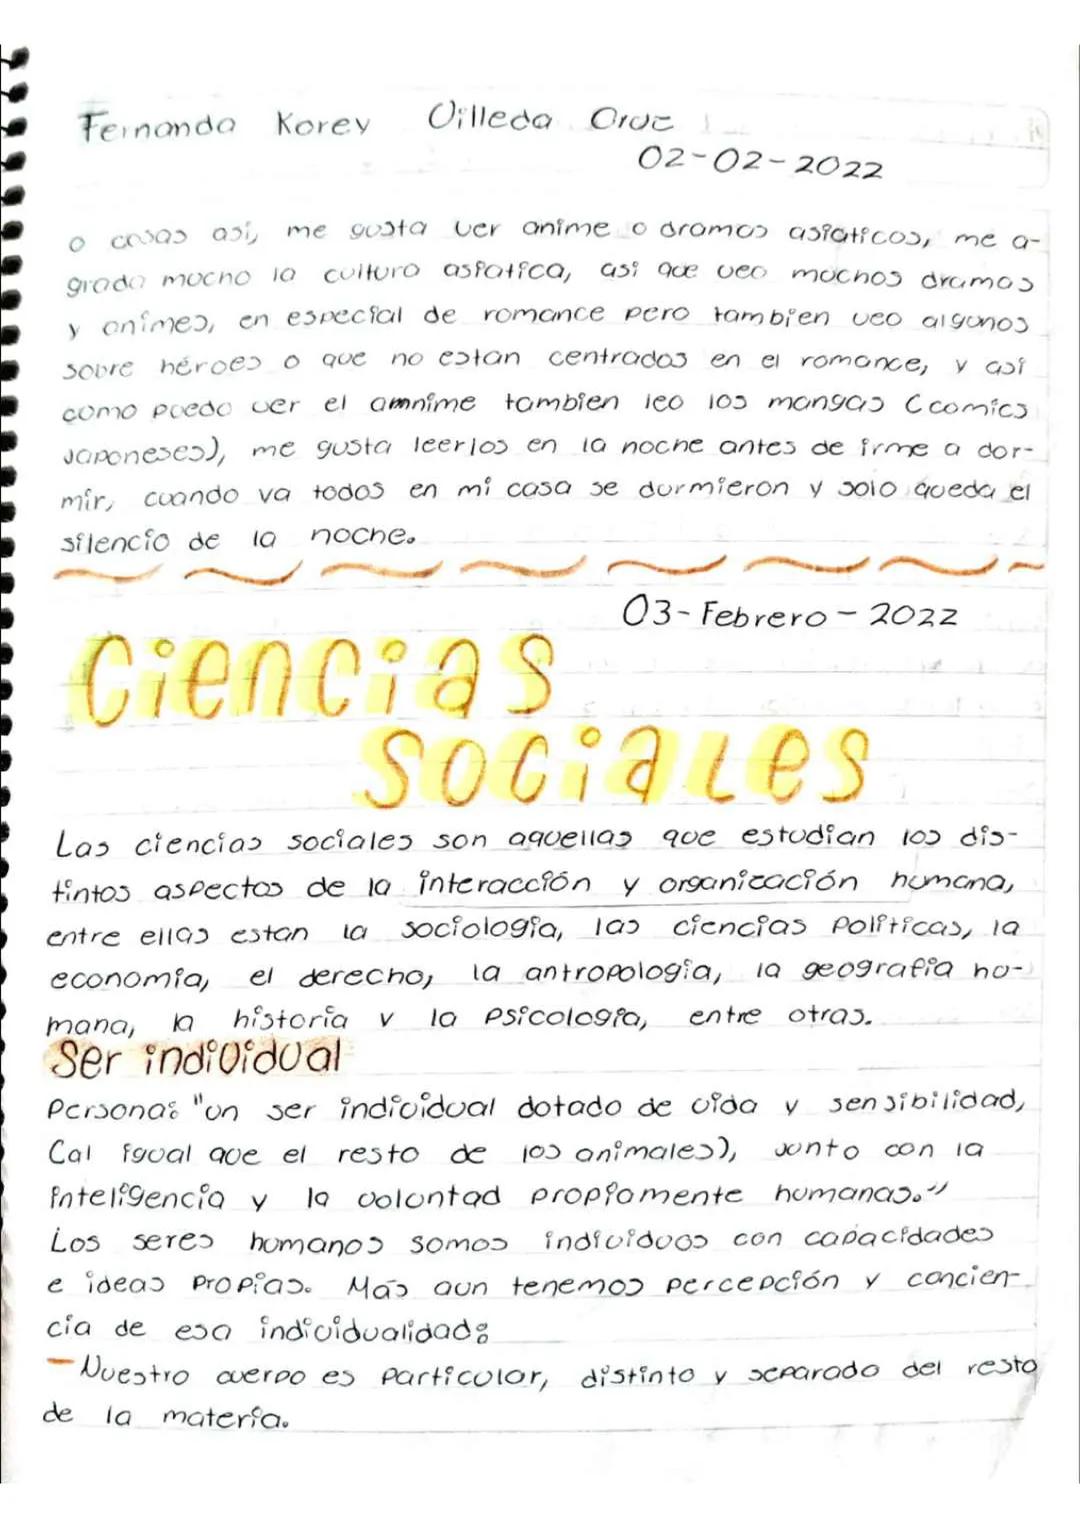 Fernanda Korey Villeda Cruz
02-02-2022
o cosas así, me gusta ver anime o dramas asiaticos, me a-
grada mucho la cultura asiatica, asi que veo muchos dramas
y animes, en especial de romance pero tambien veo algunos
sobre héroes o que no estan centrados en el romance, y así
como puedo ver el amnime tambien leo los mangas (comics
Japoneses), me gusta leerlos en la noche antes de irme a dor-
mir, cuando ya todos en mi casa se durmieron y solo queda el
silencio de la noche.
03-Febrero-2022
Ciencias
Sociales
Las ciencias sociales son aquellas que estudian los dis-
tintos aspectos de la interacción y organización humana,
entre ellas estan la sociología, las ciencias políticas, la
economía, el derecho, la antropología, la geografía hu-
mana, la historia y la psicología, entre otras.
Ser individual
Persona: "un ser individual dotado de vida y sensibilidad,
(al igual que el resto de los animales), junto con la
inteligencia y la voluntad propiamente humanas."
Los seres humanos somos individuos con capacidades
e ideas propias. Más aun tenemos percepción y concien-
cia de esa individualidad:
-Nuestro cuerpo es particular, distinto y separado del resto
de la materia.